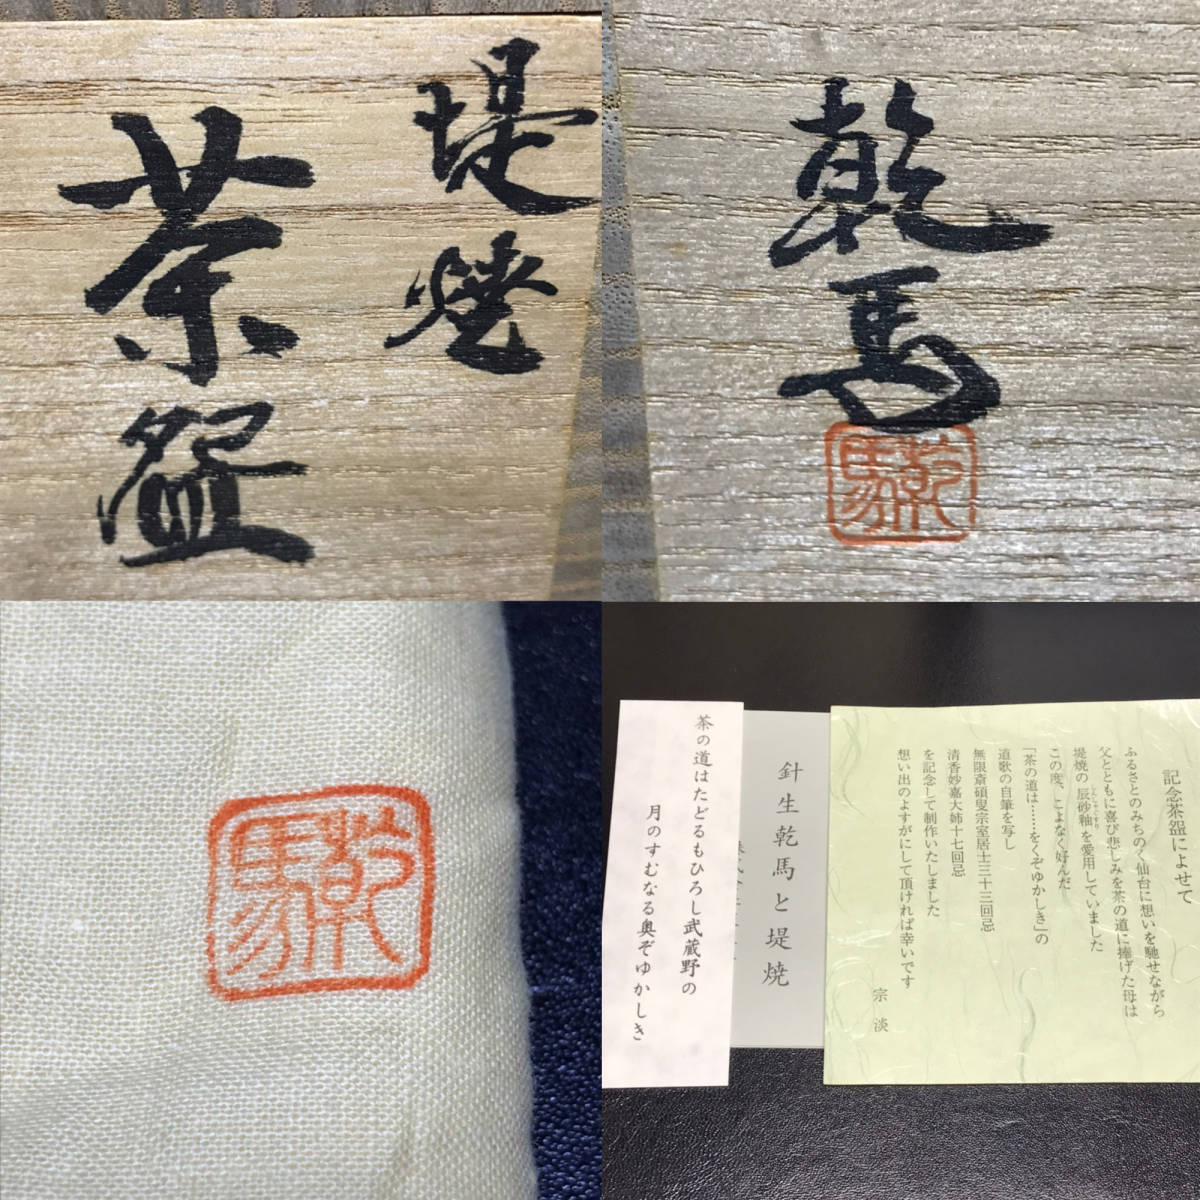 堤焼
茶盌
乾馬
乾馬
乾馬
茶の道はたどるもひろし武蔵野の
月のすむなる奥ぞゆかしき
針生乾馬と堤焼
記念茶盌によせて
ふるさとのみちのく仙台に想いを馳せながら
父とともに喜び悲しみを茶の道に捧げた母は
堤焼の辰砂釉を愛用していました
この度、こよなく好んだ
「茶の道は……をくぞゆかしき」の
道歌の自筆を写し
無限斎碩叟宗室居士三十三回忌
清香妙嘉大姉十七回忌
を記念して制作いたしました
想い出のよすがにして頂ければ幸いです
宗淡